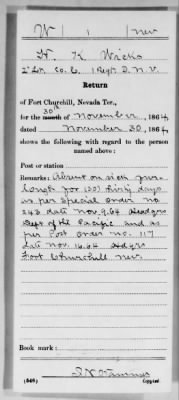 W | 1 | Nev
H. K. Wicks
2" Lt., Co. E, 1 Regt. I. N. V.
Return
of Fort Churchill, Nevada Ter.,
for the month of November, 1864,
30th
dated November 30, 1864
shows the following with regard to the person
named above:
Post or station
Remarks: Absent on sick fur-
lough for (30) thirty days
as per Special Order no
243 date Nov. 9.64 Headqrs
Dept of the Pacific and as
per Post Order no. 117
date Nov. 16.64 Hdqrs
Fort Churchill Nev.
Book mark:
(548)
Copyist.